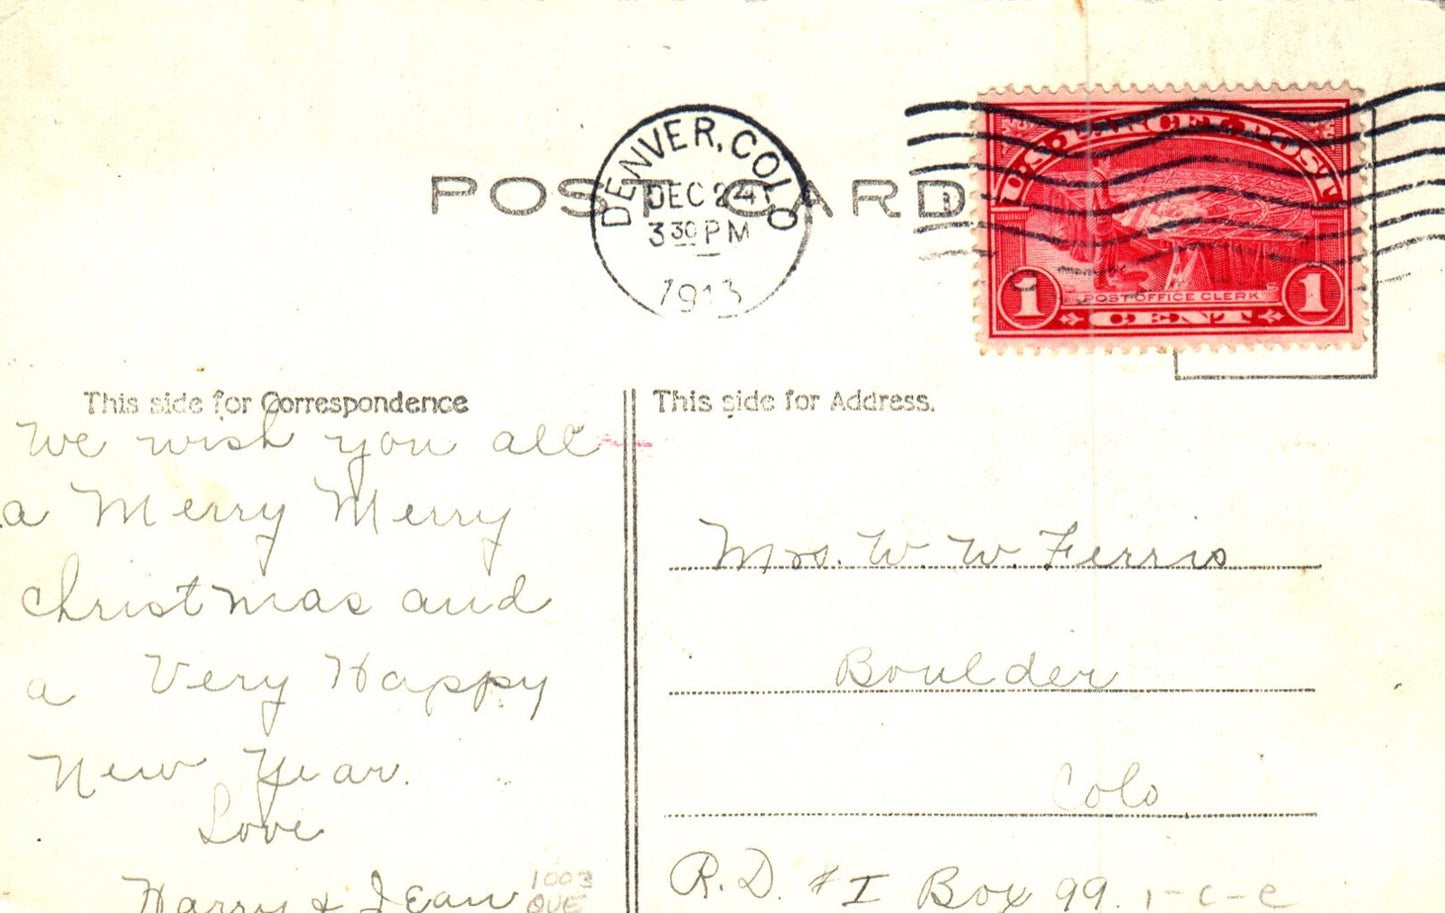 POST CARD
DENVER, COLO
DEC 24
3 30 PM
1913
U.S. PARCEL POST
POST OFFICE CLERK
1 CENT 1
This side for Correspondence
We wish you all
a Merry Merry
Christmas and
a Very Happy
New Year.
Love
Harry & Jean
1003
QVE
This side for Address.
Mrs. W. W. Ferris
Boulder
Colo
R.D. #1 Box 99. 1-c-c